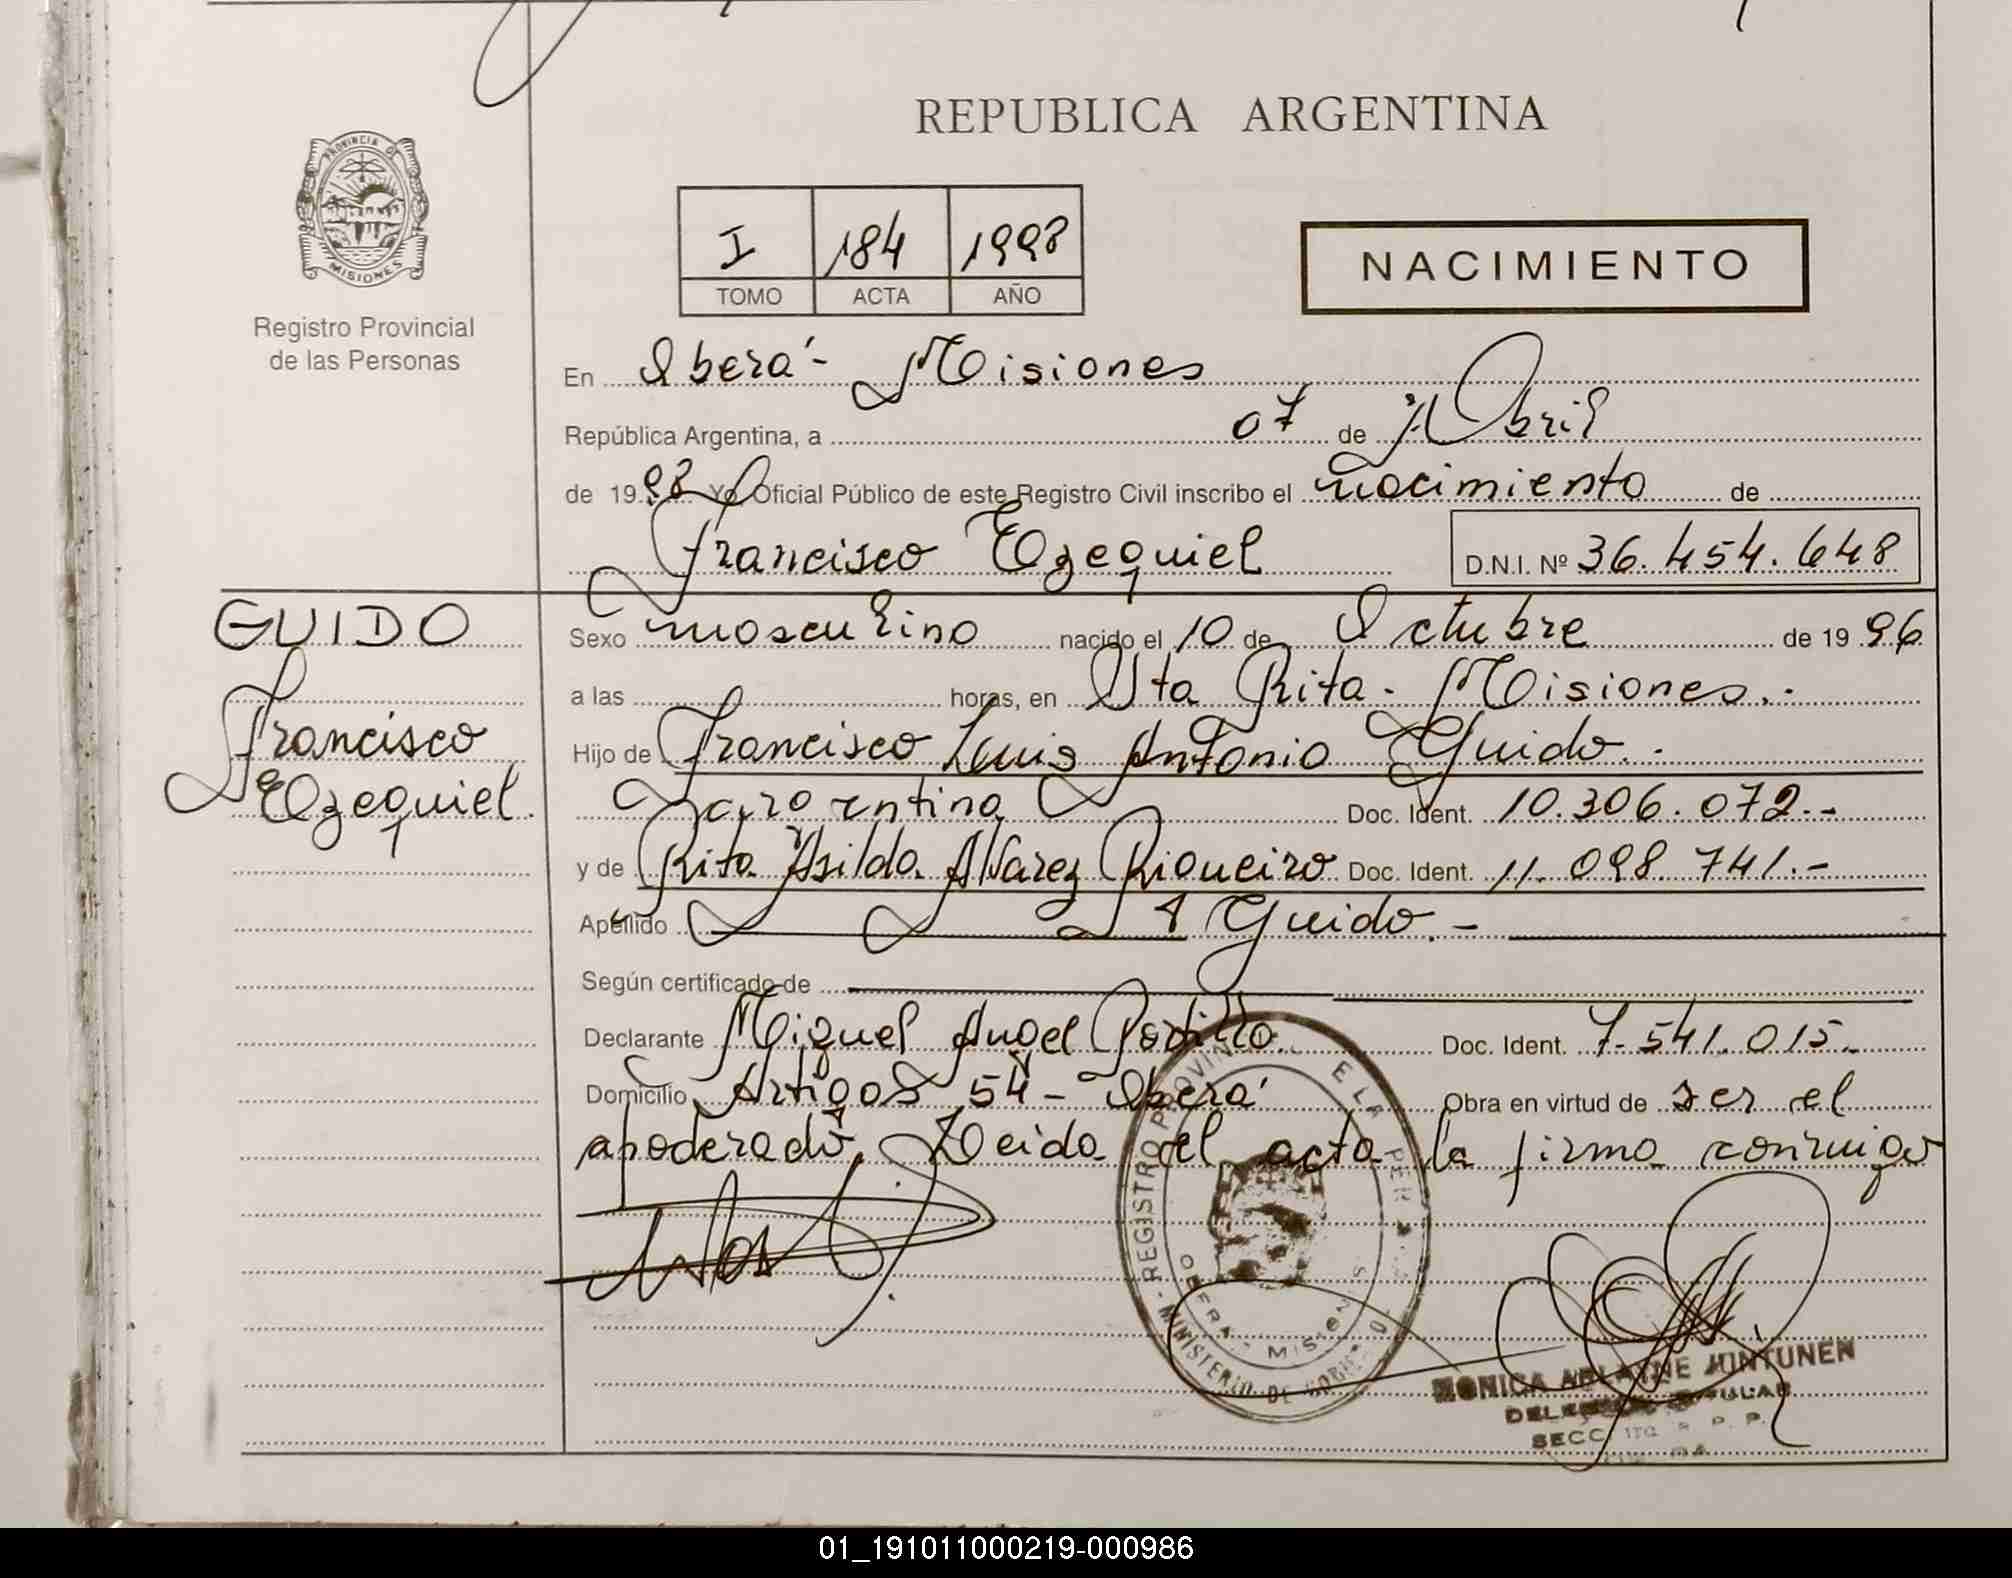 REPUBLICA ARGENTINA
PROVINCIA DE
MISIONES
Registro Provincial
de las Personas
I 184 1998
TOMO ACTA AÑO
NACIMIENTO
En Oberá - Misiones
República Argentina, a 07 de Abril
de 1998 Yo Oficial Público de este Registro Civil inscribo el nacimiento de
Francisco Ezequiel D.N.I. Nº 36.454.648
GUIDO
Francisco
Ezequiel.
Sexo masculino nacido el 10 de Octubre de 1996
a las horas, en Sta Rita - Misiones.-
Hijo de Francisco Luis Antonio Guido.-
argentino Doc. Ident. 10.306.072.-
y de Rita Asilda Alvarez Doc. Ident. 11.098.741.-
Apellido Guido.-
Según certificado de
Declarante Miguel Angel Portillo Doc. Ident. 7.541.015.-
Domicilio Artigas 54 - Oberá Obra en virtud de ser el
apoderado. Leida el acta la firma conmigo
REGISTRO PROVINCIAL DE LAS PER
MINISTERIO DE GOBIERNO
OBERA MISIONES
MONICA JUNTUNEN
SECC
01_191011000219-000986